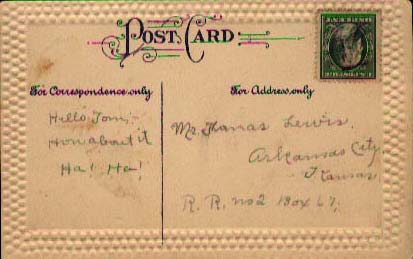 POST CARD
For Correspondence only
For Address, only
Hello Tom,-
How about it
Ha! Ha!
Mr. Thomas Lewis.
Arkansas City
Kansas
R. R. no 2 Box 67,